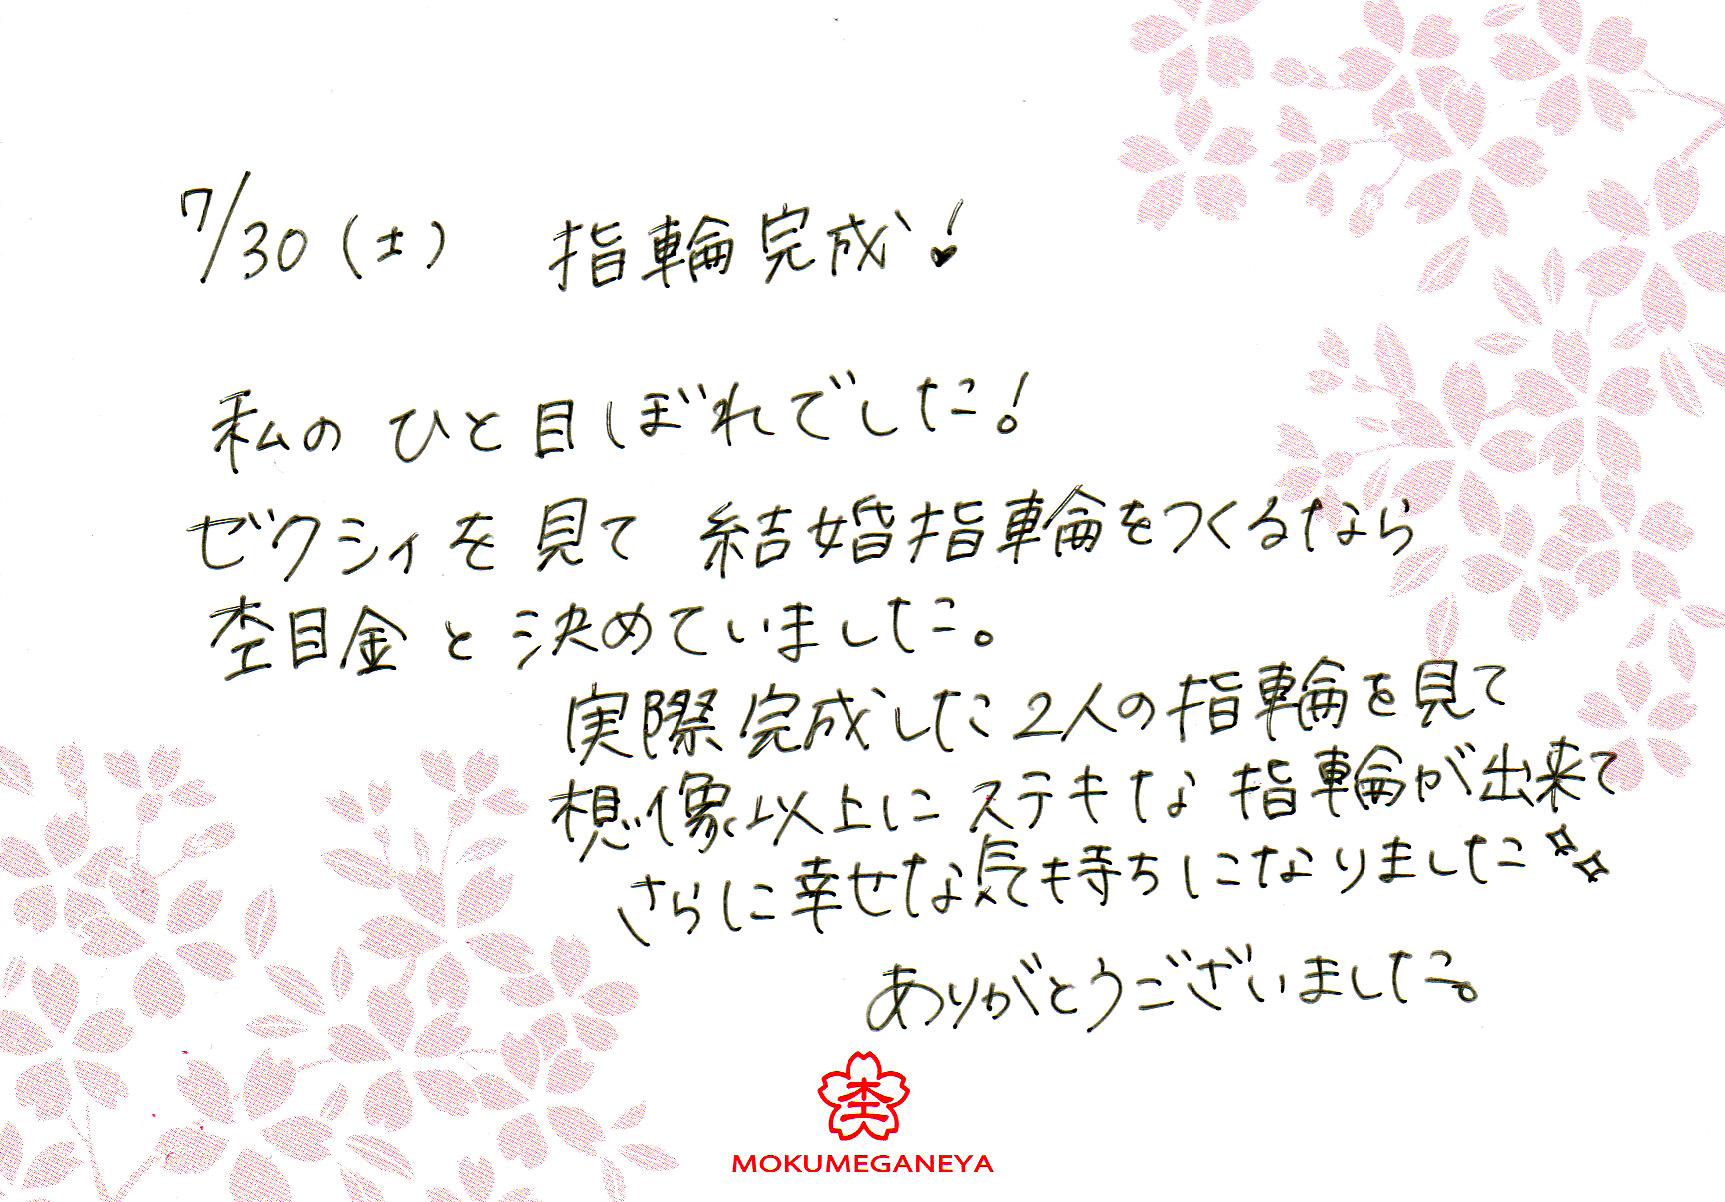 7/30(土) 指輪完成!
私の ひと目ぼれでした!
ゼクシィを見て 結婚指輪をつくるなら
杢目金と決めていました。
実際完成した2人の指輪を見て
想像以上にステキな 指輪が出来て
さらに幸せな気持ちになりました
ありがとうございました。
杢
MOKUMEGANEYA